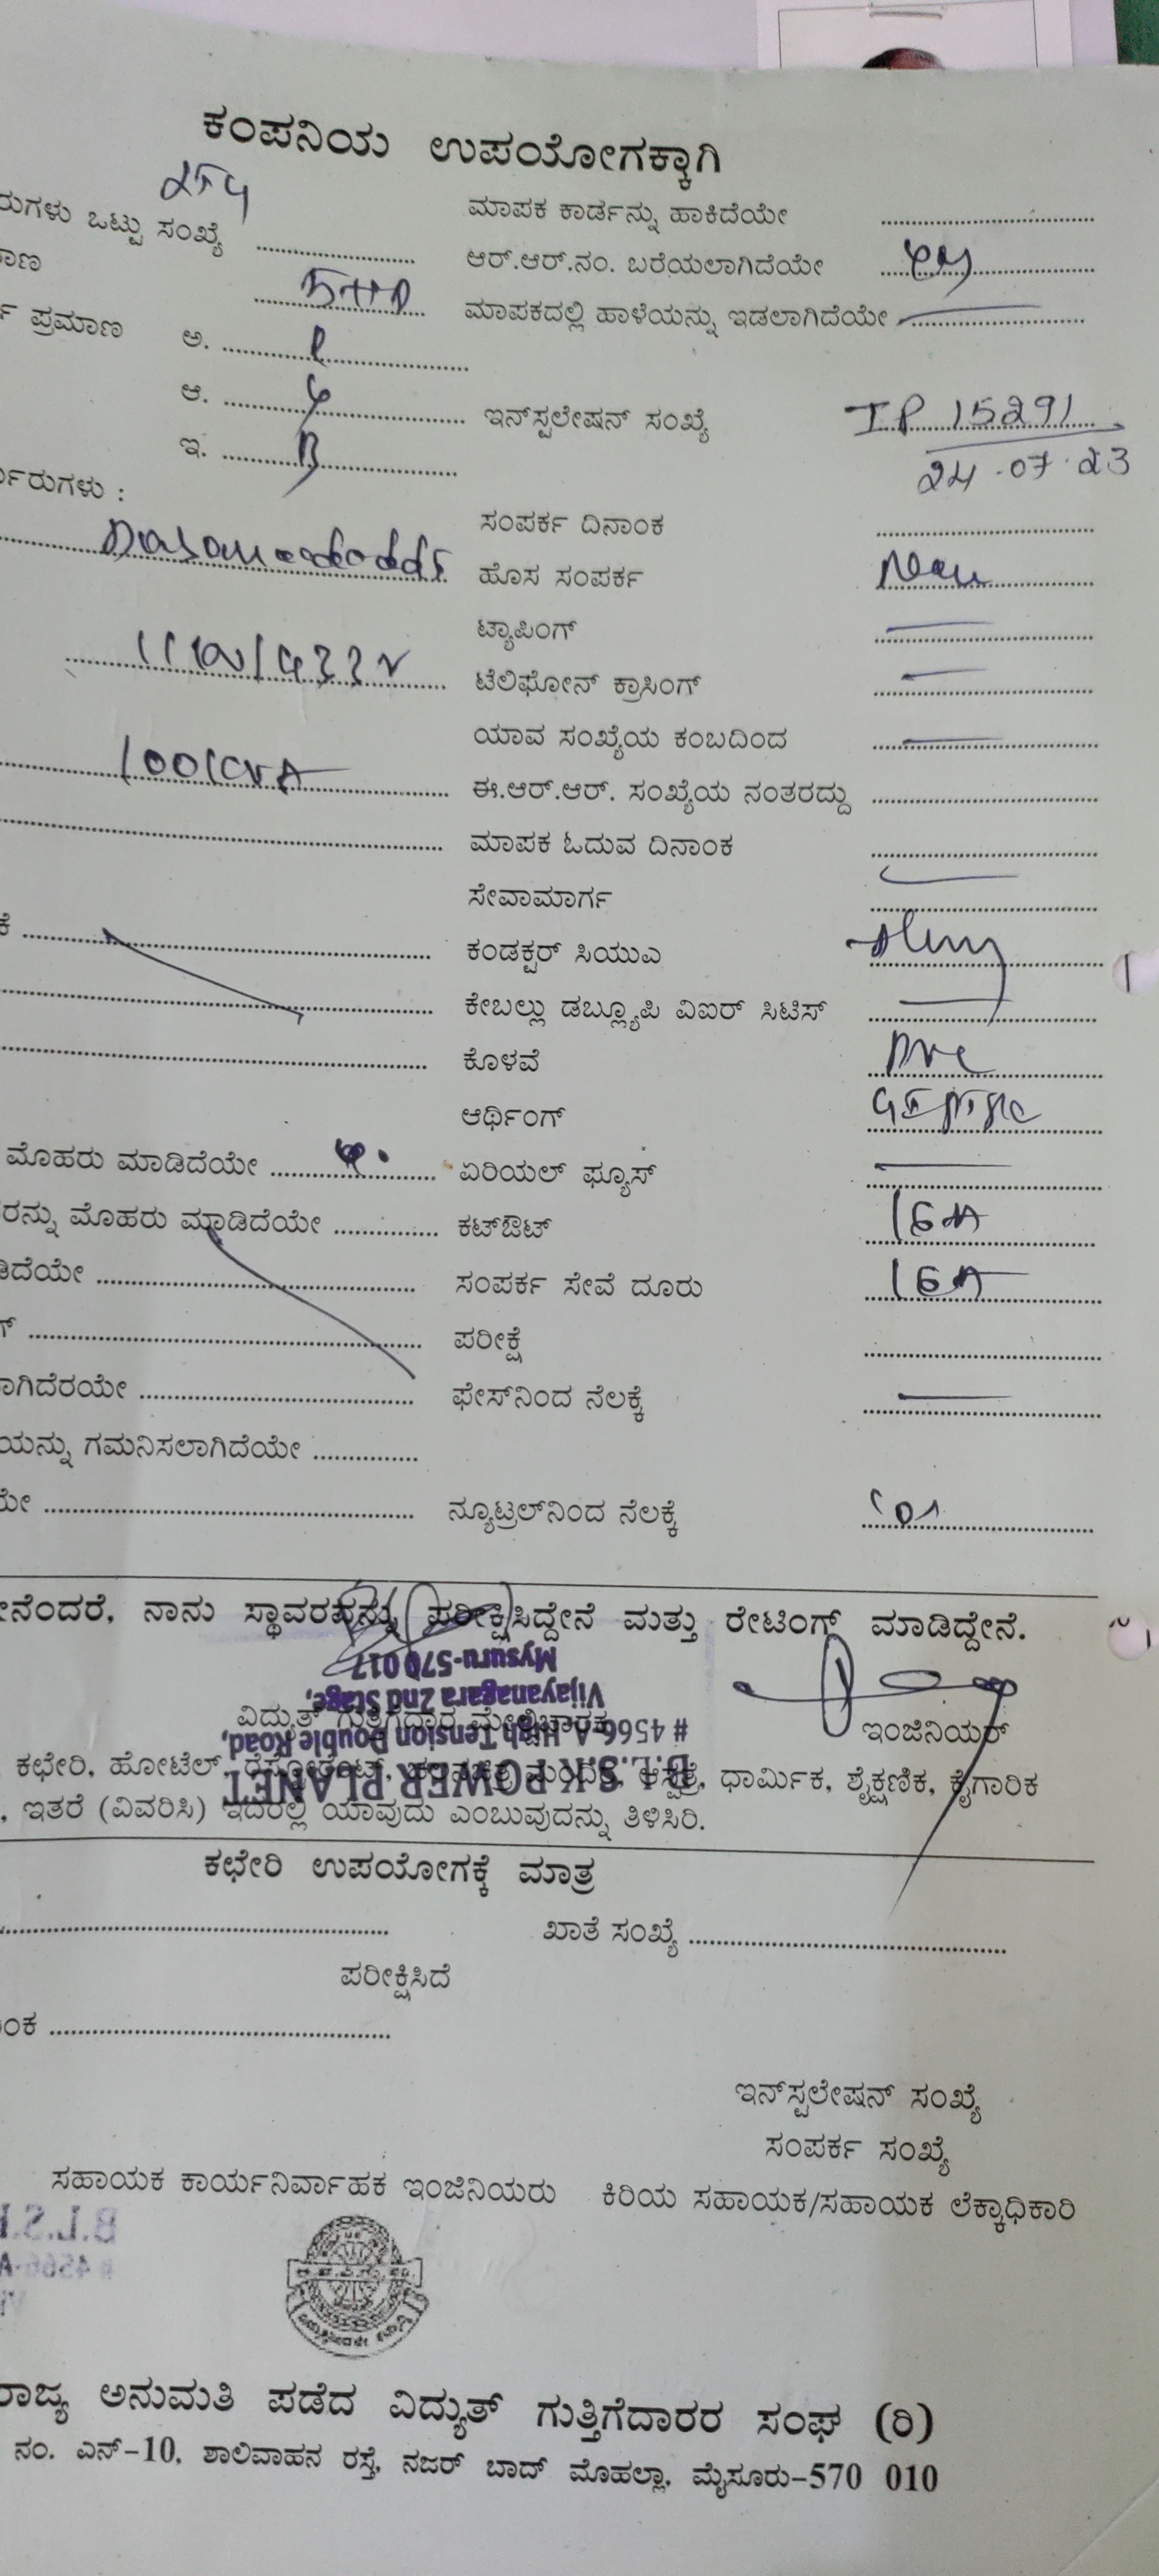 ಕಂಪನಿಯ ಉಪಯೋಗಕ್ಕಾಗಿ
ರುಗಳು ಒಟ್ಟು ಸಂಖ್ಯೆ
ಮಾಪಕ ಕಾರ್ಡನ್ನು ಹಾಕಿದೆಯೇ
ಆರ್.ಆರ್.ನಂ. ಬರೆಯಲಾಗಿದೆಯೇ
5HP
ಮಾಪಕದಲ್ಲಿ ಹಾಳೆಯನ್ನು ಇಡಲಾಗಿದೆಯೇ
ಪ್ರಮಾಣ ಅ.
ಆ.
ಇನ್‌ಸ್ಟಲೇಷನ್ ಸಂಖ್ಯೆ IP 15291
ಇ. B
24.07.23
ರುಗಳು :
ಸಂಪರ್ಕ ದಿನಾಂಕ
ಹೊಸ ಸಂಪರ್ಕ New
ಟ್ಯಾಪಿಂಗ್
11KV/433V
ಟೆಲಿಫೋನ್ ಕ್ರಾಸಿಂಗ್
ಯಾವ ಸಂಖ್ಯೆಯ ಕಂಬದಿಂದ
100KVA
ಈ.ಆರ್.ಆರ್. ಸಂಖ್ಯೆಯ ನಂತರದ್ದು
ಮಾಪಕ ಓದುವ ದಿನಾಂಕ
ಸೇವಾಮಾರ್ಗ
ಕಂಡಕ್ಟರ್ ಸಿಯುಎ
ಕೇಬಲ್ಲು ಡಬ್ಲ್ಯೂಪಿ ವಿಐರ್ ಸಿಟಿಸ್
ಕೊಳವೆ PVC
ಆರ್ಥಿಂಗ್
ಮೊಹರು ಮಾಡಿದೆಯೇ
ಏರಿಯಲ್ ಫ್ಯೂಸ್
ರನ್ನು ಮೊಹರು ಮಾಡಿದೆಯೇ
ಕಟ್‌ಔಟ್ 16A
ಡಿದೆಯೇ
ಸಂಪರ್ಕ ಸೇವೆ ದೂರು 16A
ಪರೀಕ್ಷೆ
ಾಗಿದೆರಯೇ
ಫೇಸ್‌ನಿಂದ ನೆಲಕ್ಕೆ
ಯನ್ನು ಗಮನಿಸಲಾಗಿದೆಯೇ
ಯೇ
ನ್ಯೂಟ್ರಲ್‌ನಿಂದ ನೆಲಕ್ಕೆ
ನೆಂದರೆ, ನಾನು ಸ್ಥಾವರವನ್ನು ಪರೀಕ್ಷಿಸಿದ್ದೇನೆ ಮತ್ತು ರೇಟಿಂಗ್ ಮಾಡಿದ್ದೇನೆ.
B.L.S.K POWER PLANET
# 4566-A, High Tension Double Road,
Vijayanagara 2nd Stage,
Mysuru-570017
ವಿದ್ಯುತ್ ಗುತ್ತಿಗೆದಾರ ಮೇಲ್ವಿಚಾರಕ
ಇಂಜಿನಿಯರ್
ಕಛೇರಿ, ಹೋಟೆಲ್, ಆಸ್ಪತ್ರೆ, ಧಾರ್ಮಿಕ, ಶೈಕ್ಷಣಿಕ, ಕೈಗಾರಿಕ
, ಇತರೆ (ವಿವರಿಸಿ) ಇದರಲ್ಲಿ ಯಾವುದು ಎಂಬುವುದನ್ನು ತಿಳಿಸಿರಿ.
ಕಛೇರಿ ಉಪಯೋಗಕ್ಕೆ ಮಾತ್ರ
ಖಾತೆ ಸಂಖ್ಯೆ
ಪರೀಕ್ಷಿಸಿದೆ
ಂಕ
ಇನ್‌ಸ್ಟಲೇಷನ್ ಸಂಖ್ಯೆ
ಸಂಪರ್ಕ ಸಂಖ್ಯೆ
ಸಹಾಯಕ ಕಾರ್ಯನಿರ್ವಾಹಕ ಇಂಜಿನಿಯರು ಕಿರಿಯ ಸಹಾಯಕ/ಸಹಾಯಕ ಲೆಕ್ಕಾಧಿಕಾರಿ
ರಾಜ್ಯ ಅನುಮತಿ ಪಡೆದ ವಿದ್ಯುತ್ ಗುತ್ತಿಗೆದಾರರ ಸಂಘ (ರಿ)
ನಂ. ಎನ್-10, ಶಾಲಿವಾಹನ ರಸ್ತೆ, ನಜರ್ ಬಾದ್ ಮೊಹಲ್ಲಾ, ಮೈಸೂರು-570 010